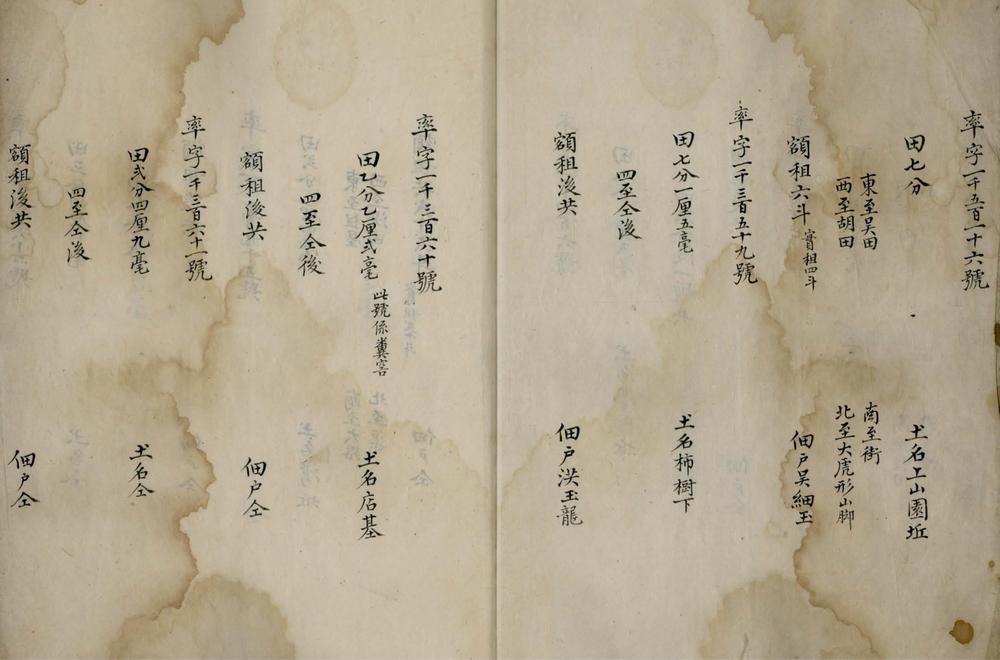 率字一千五百一十六號
田七分 土名上山園坵
東至吴田 南至街
西至胡田 北至大虎形山脚
額租六斗 實租四斗 佃户吴細玉
率字一千三百五十九號
田七分一厘五毫 土名柿樹下
四至仝後
額租後共 佃户洪玉龍
率字一千三百六十號
田乙分乙厘弍毫 此號係糞窖 土名店基
四至仝後
額租後共 佃户仝
率字一千三百六十一號
田弍分四厘九毫 土名仝
四至仝後
額租後共 佃户仝